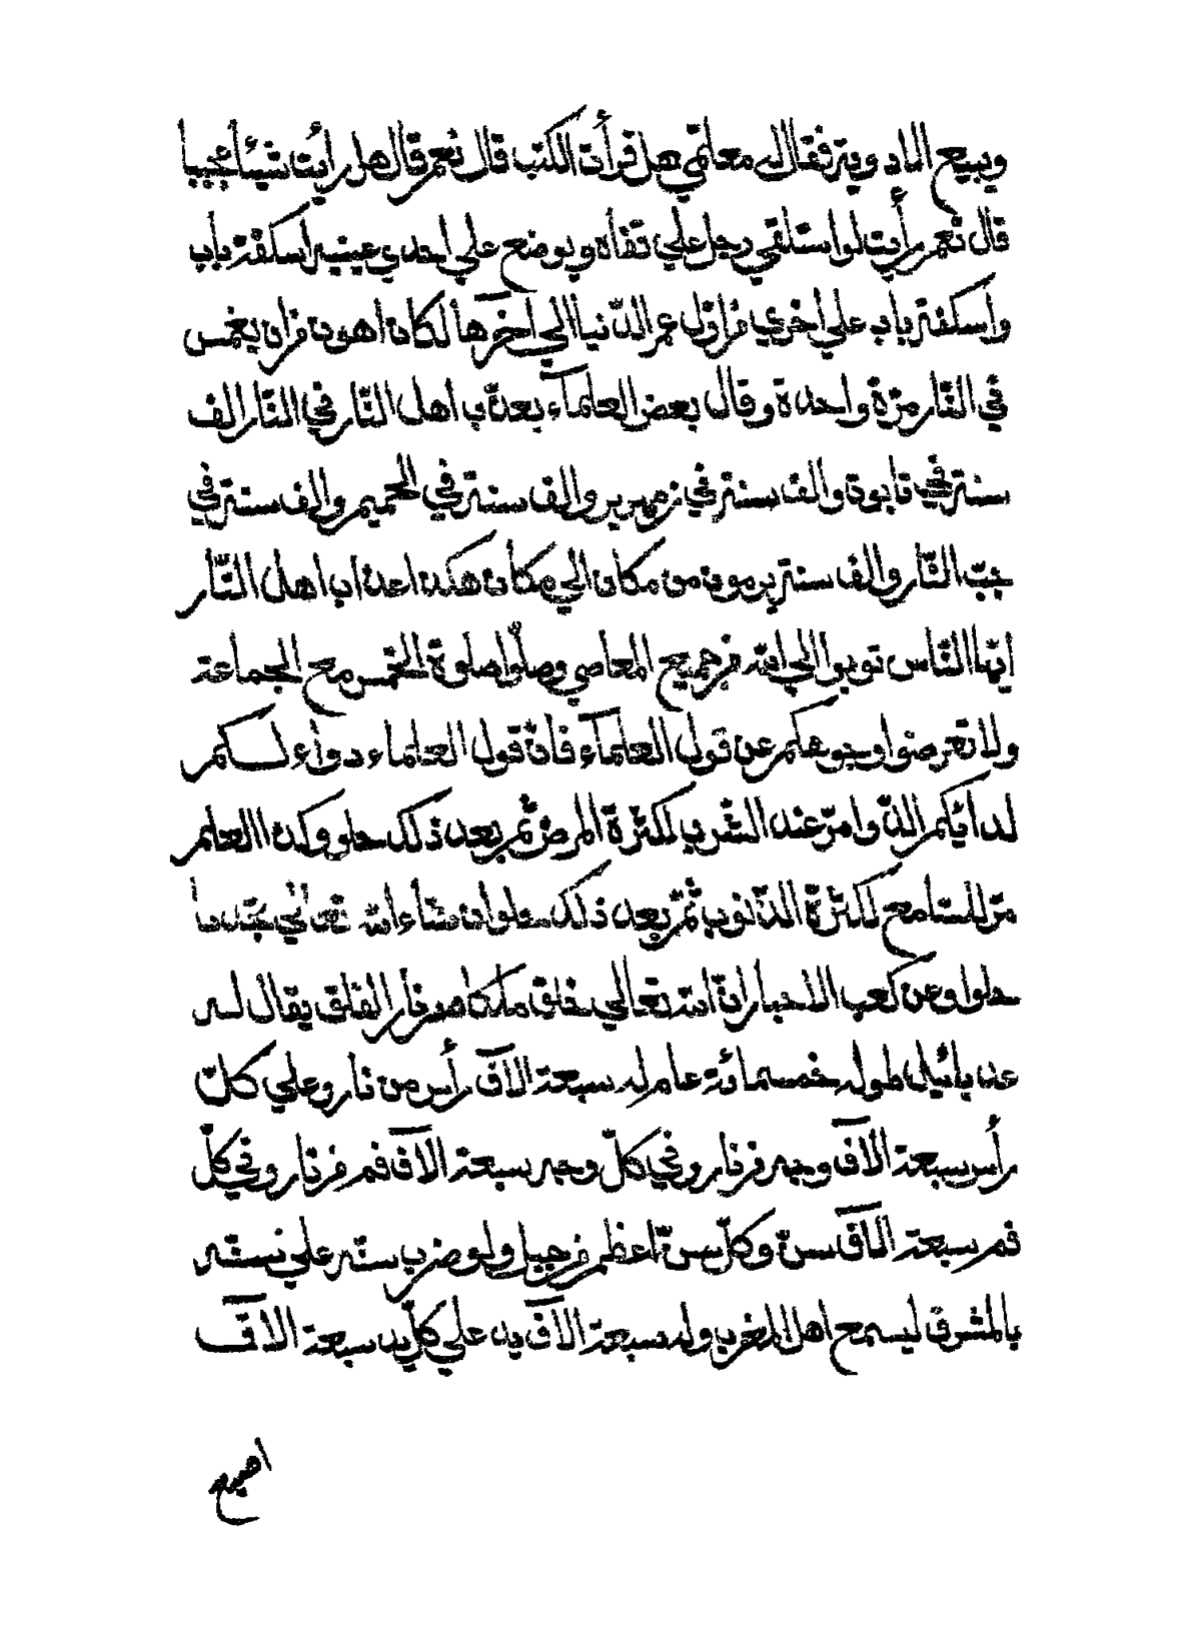 ويبيع الادوية فقال له معلمي هل قرأت الكتب قال نعم قال هل رأيت شيئا عجيبا
قال نعم رأيت لو استلقي رجل علي قفاه ويوضع علي احدي عينيه اسكفة باب
واسكفة باب علي اخري من اوّل عمر الدّنيا الي آخرها لكان اهون من ان يغمس
في النّار مرّة واحدة وقال بعض العلمآء يعذّب اهل النّار في النّار الف
سنة في تابوت والف سنة في زمهرير والف سنة في الحميم والف سنة في
جبّ النّار والف سنة يرمون من مكان الي مكان هكذا عذاب اهل النّار
ايّها النّاس توبوا الي الله من جميع المعاصي وصلّوا صلوة الخمس مع الجماعة
ولا تعرضوا وجوهكم عن قول العلمآء فانّ قول العلماء دواء لسكم
لدائكم الدّواء مرّ عند الشّرب لكثرة المرض ثمّ بعد ذلك حلو وكذا العلم
مرّ للسامع لكثرة الذّنوب ثمّ بعد ذلك حلو ان شاء الله تعالي
حلوا وعن كعب الاحبار انّ الله تعالي خلق ملكا من نار الفلق يقال له
طوله خمسمائة عام له سبعة الآف رأس من نار وعلي كلّ
رأس سبعة الآف وجه من نار وفي كلّ وجه سبعة الآف فم من نار وفي كلّ
فم سبعة الآف سنّ وكلّ سنّ اعظم من جبل ولو ضرب سنّه علي سنّه
بالمشرق ليسمع اهل المغرب وله سبعة الآف يد علي كلّ يد سبعة الآف
اصبع